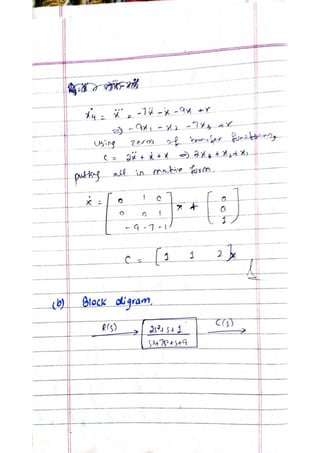 ẋ₄ = ẍ̇ = -7ẍ - ẋ - 9x + r
⇒ -9x₁ - x₂ - 7x₃ + r
Using zeros of transfer function,
C = 2ẍ + ẋ + x ⇒ 2x₃ + x₂ + x₁
putting all in matrix form
ẋ = [ 0 1 0
0 0 1
-9 -7 -1 ] x + [ 0
0
1 ]
C = [ 1 1 2 ] x
(b) Block digram.
R(s) → 2s²+s+1 / s³+7s²+s+9 → C(s)